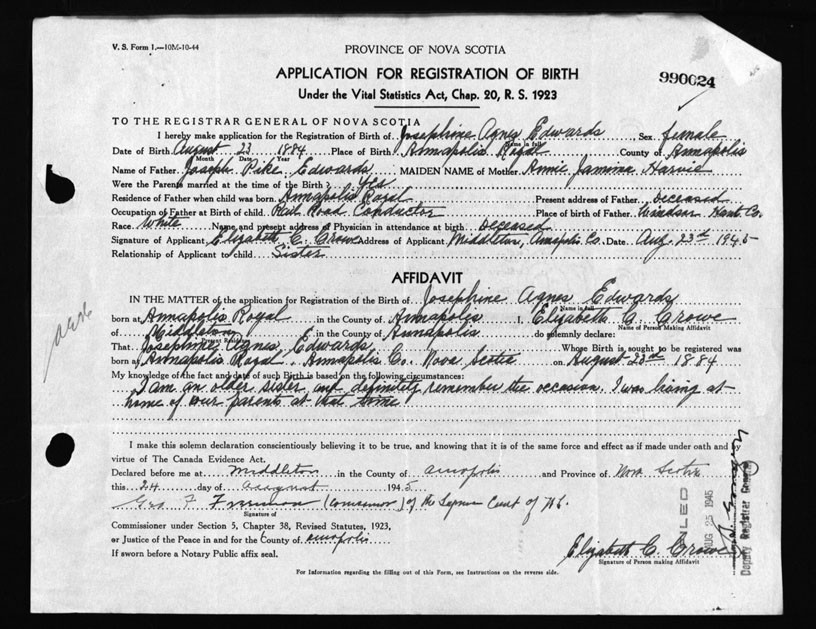 V. S. Form 1.—10M-10-44
PROVINCE OF NOVA SCOTIA
APPLICATION FOR REGISTRATION OF BIRTH
990024
Under the Vital Statistics Act, Chap. 20, R. S. 1923
TO THE REGISTRAR GENERAL OF NOVA SCOTIA
I hereby make application for the Registration of Birth of Josephine Agnes Edwards, Sex female
Name in full
Date of Birth August 23 1884 Place of Birth Annapolis Royal County of Annapolis
Month Date Year
Name of Father Joseph Pike Edwards MAIDEN NAME of Mother Annie Jamima Harvie
Were the Parents married at time of the Birth? Yes
Residence of Father when child was born Annapolis Royal Present address of Father Deceased
Occupation of Father at Birth of child Rail Road Conductor Place of birth of Father Windsor Hants Co.
Race White Name and present address of Physician in attendance at birth Deceased
Signature of Applicant Elizabeth C. Crowe Address of Applicant Middleton, Annapolis Co. Date Aug. 23rd 1945
Relationship of Applicant to child Sister
AFFIDAVIT
IN THE MATTER of the application for Registration of the Birth of Josephine Agnes Edwards
Name in full
born at Annapolis Royal in the County of Annapolis I, Elizabeth C. Crowe
of Middleton in the County of Annapolis do solemnly declare:
Present Residence Name of Person Making Affidavit
That Josephine Agnes Edwards Whose Birth is sought to be registered was
born at Annapolis Royal, Annapolis Co. Nova Scotia on August 23rd 1884
My knowledge of the fact and date of such Birth is based on the following circumstances:
I am an older sister and definitely remember the occasion. I was living at
home of our parents at that time.
I make this solemn declaration conscientiously believing it to be true, and knowing that it is of the same force and effect as if made under oath and by
virtue of The Canada Evidence Act.
Declared before me at Middleton in the County of Annapolis and Province of Nova Scotia
this 24 day of August 1945
Geo F Freeman (Commissioner) of the Supreme Court of N.S.
Signature of
Commissioner under Section 5, Chapter 38, Revised Statutes, 1923,
or Justice of the Peace in and for the County of Annapolis
If sworn before a Notary Public affix seal.
Elizabeth C. Crowe
Signature of Person making Affidavit
For Information regarding the filling out of this Form, see Instructions on the reverse side.
FILED
AUG 25 1945
Deputy Registrar General